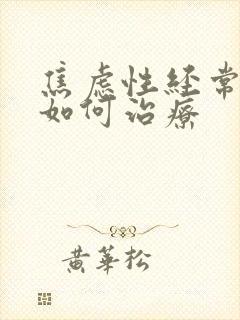 焦虑性経常
如何治療
黄華松